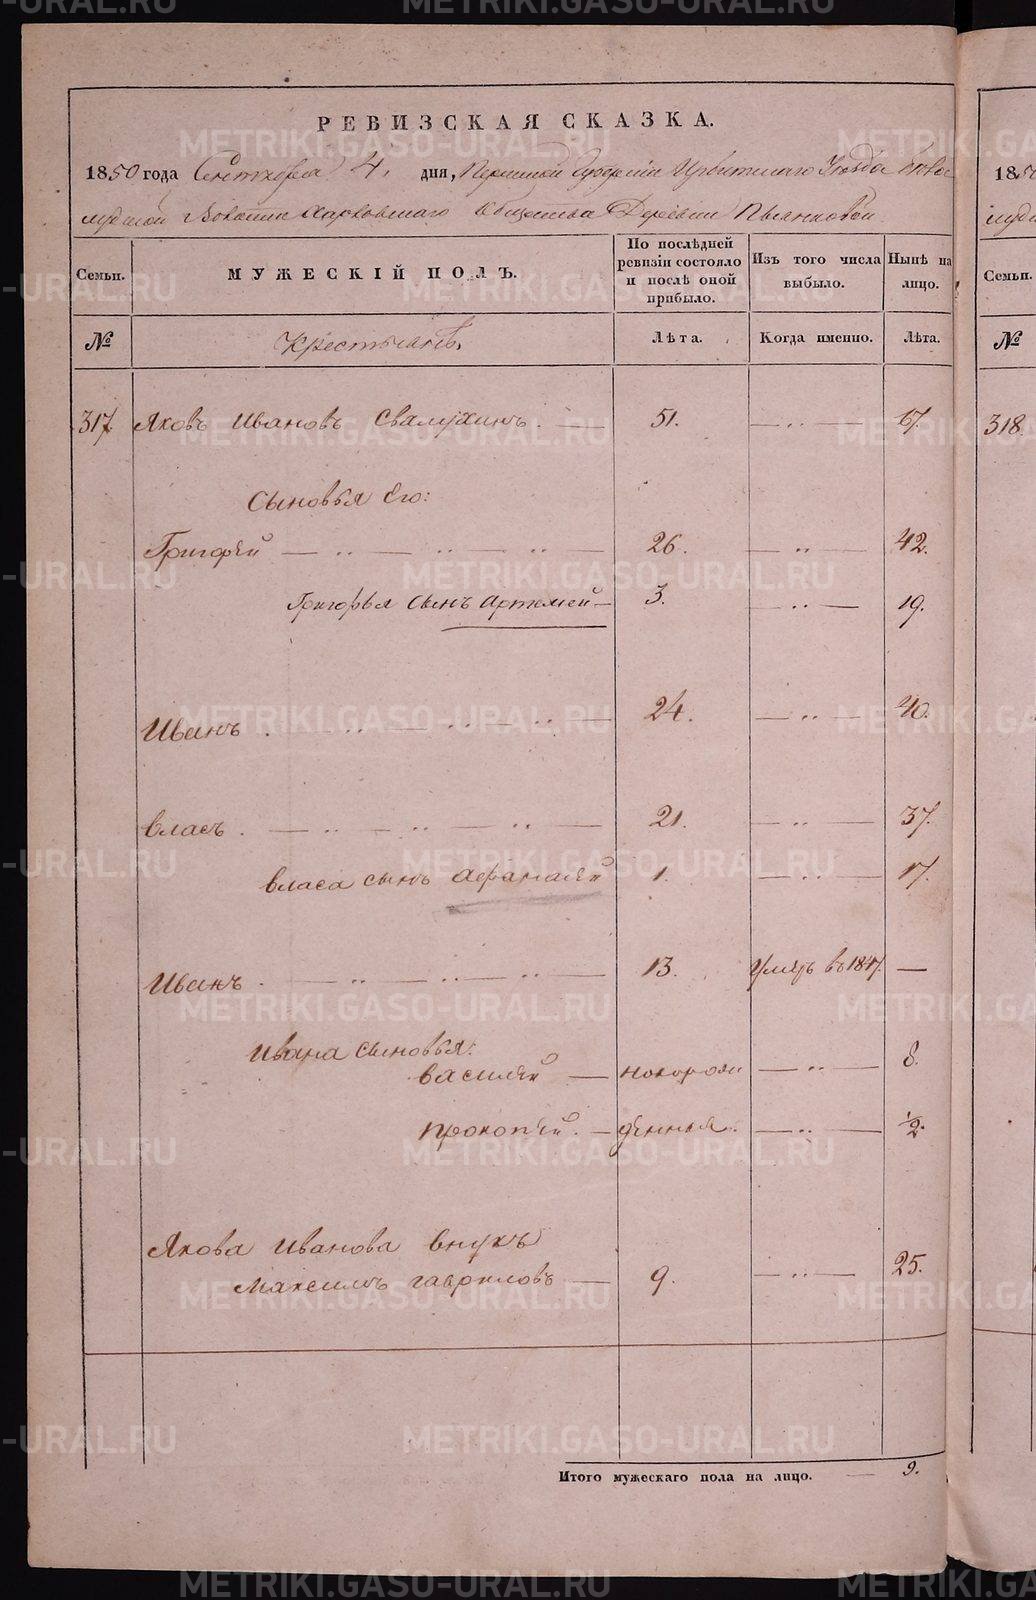 РЕВИЗСКАЯ СКАЗКА.
1850 года Сентября 4. дня, Пермской Губернии Ирбитского Уѣзда
Волости Харловского Общества Деревни Пьянковой
Семьи. МУЖЕСКІЙ ПОЛЪ. По послѣдней ревизіи состояло и послѣ оной прибыло. Изъ того числа выбыло. Нынѣ на лицо.
№ Крестьяне. Лѣта. Когда именно. Лѣта.
317. Яковъ Ивановъ Свалухинъ. 51. — „ — 67.
Сыновья Его:
Григорій — „ — „ — „ — 26. — „ — 42.
Григорья сынъ Артемей — 3. — „ — 19.
Иванъ . — „ — „ — „ — 24. — „ — 40.
Власъ . — „ — „ — „ — 21. — „ — 37.
Власа сынъ Афанасій 1. — „ — 17.
Иванъ . — „ — „ — „ — 13. Умеръ въ 1847. —
Ивана сыновья:
Василій — новорож — „ — 8.
Прокопій. — денныя. — „ — 1/2.
Якова Иванова внукъ
Максимъ Гавриловъ — 9. — „ — 25.
Итого мужескаго пола на лицо. — 9.
185
Семьи.
№
318.
METRIKI.GASO-URAL.RU